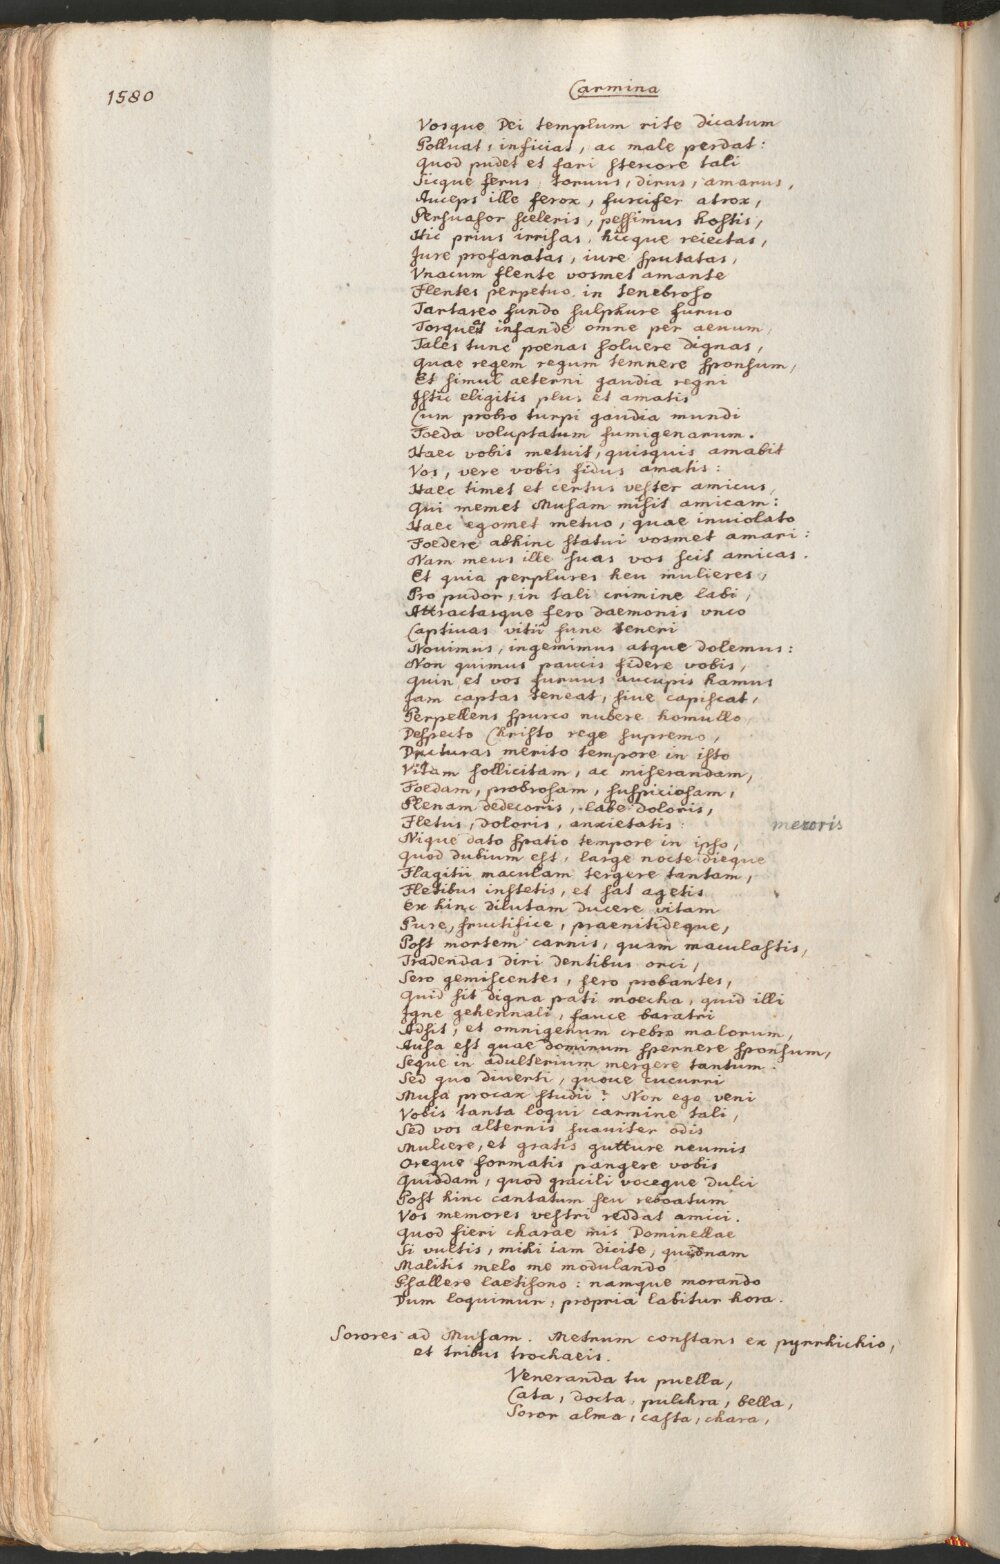 1580
Carmina
Vosque Dei templum rite dicatum
Polluat, inficiat, ac male perdat:
Quod pudet et fari stercore tali
Sicque ferus, toruus, dirus, amarus,
Auceps ille ferox, furcifer atrox,
Persuasor sceleris, pessimus hostis,
Hic prius irrisas, hicque reiectas,
Jure profanatas, iure sputatas,
Vnacum flente vosmet amante
Flentes perpetuo in tenebroso
Tartareo fundo sulphure furuo
Torqueat infande omne per aeuum,
Tales tunc poenas soluere dignas,
Quae regem regum temnere sponsum,
Et simul aeterni gaudia regni
Istic eligitis plus et amatis
Cum probro turpi gaudia mundi
Foeda voluptatum fumigenarum.
Haec vobis metuit, quisquis amabit
Vos, vere vobis fidus amatis:
Haec timet et certus vester amicus,
Qui memet Musam misit amicam:
Haec egomet metuo, quae inuiolato
Foedere abhinc statui vosmet amari:
Nam meus ille suas vos scit amicas.
Et quia perplures heu mulieres,
Pro pudor, in tali crimine labi,
Attractasque fero daemonis vnco
Captiuas vitii fune teneri
Nouimus, ingemimus atque dolemus:
Non quimus paucis fidere vobis,
Quin et vos furuus aucupis hamus
Jam captas teneat, siue capiscat,
Perpellens spurco nubere homullo,
Despecto Christo rege supremo,
Ducturas merito tempore in isto
Vitam sollicitam, ac miserandam,
Foedam, probrosam, suspiciosam,
Plenam dedecoris, labe doloris,
Fletus, doloris, anxietatis: meroris
Nique dato spatio tempore in ipso,
Quod dubium est, large nocte dieque
Flagitii maculam tergere tantam,
Fletibus instetis, et sat agetis
Ex hinc dilutam ducere vitam
Pure, fructifice, praenitideque,
Post mortem carnis, quam maculastis,
Tradendas diri dentibus orci,
Sero gemiscentes, sero probantes,
Quid sit digna pati moecha, quid illi
Igne gehennali, fauce baratri
Adsit, et omnigenum crebro malorum,
Ausa est quae dominum spernere sponsum,
Seque in adulterium mergere tantum.
Sed quo diuerti, quoue cucurri
Musa procax studii? Non ego veni
Vobis tanta loqui carmine tali,
Sed vos alternis suauiter odis
Mulcere, et gratis gutture neumis
Oreque formatis pangere vobis
Quiddam, quod gracili voceque dulci
Post hinc cantatum seu reboatum
Vos memores vestri reddat amici.
Quod fieri charae mis Dominellae
Si vultis, mihi iam dicite, quidnam
Malitis melo me modulando
Psallere laetisono: namque morando
Dum loquimur, propria labitur hora.
Sorores ad Musam. Metrum constans ex pyrrhichio,
et tribus trochaeis.
Veneranda tu puella,
Cata, docta, pulchra, bella,
Soror alma, casta, chara,